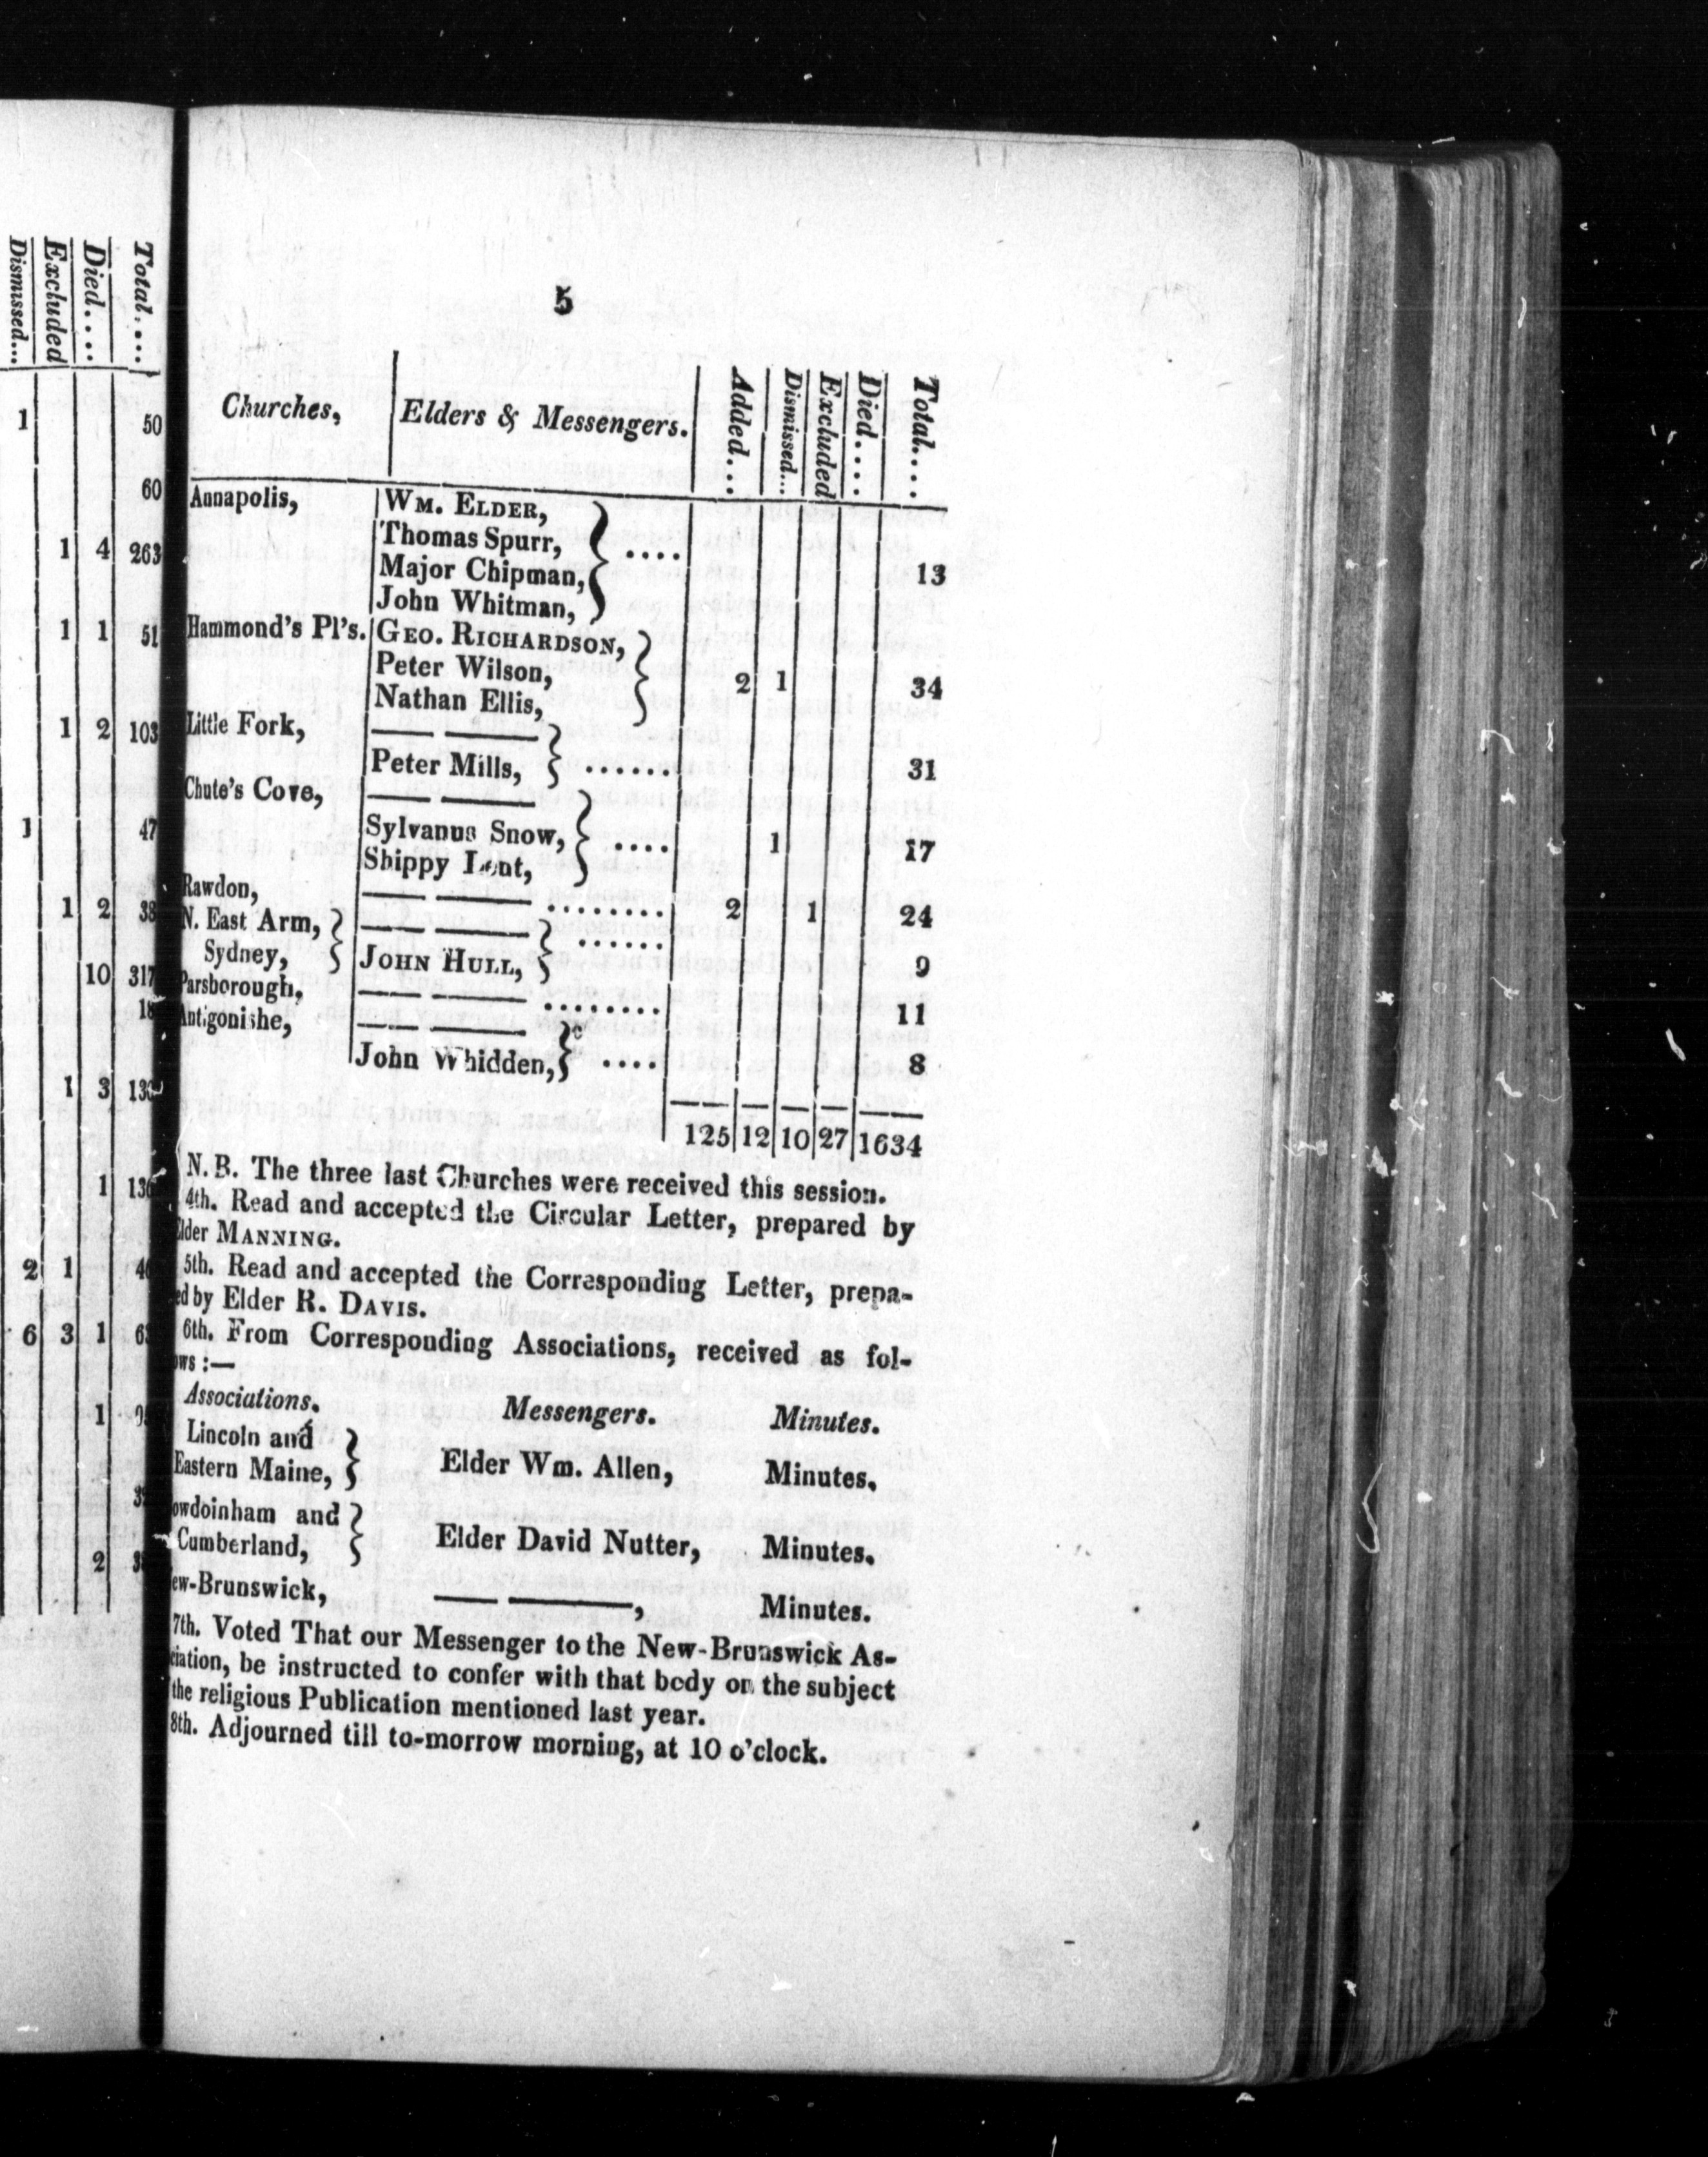 Dismissed...
Excluded
Died....
Total....
1 50
60
1 4 263
1 1 51
1 2 103
1 47
1 2 38
10 317
1 3
1
2 1
6 3 1
1
2
5
Churches, Elders & Messengers. Added... Dismissed... Excluded Died.... Total....
Annapolis, WM. ELDER,
Thomas Spurr, ....
Major Chipman, 13
John Whitman,
Hammond's Pl's. GEO. RICHARDSON,
Peter Wilson, 2 1 34
Nathan Ellis,
Little Fork, —— ——
Peter Mills, ....... 31
Chute's Cove, —— ——
Sylvanus Snow, .... 1 17
Shippy Lent,
Rawdon, —— —— ........ 2 1 24
N. East Arm, —— —— ......
Sydney, JOHN HULL, 9
Parsborough, —— —— ........ 11
Antigonishe, —— ——
John Whidden, .... 8
125 12 10 27 1634
N. B. The three last Churches were received this session.
4th. Read and accepted the Circular Letter, prepared by
Elder MANNING.
5th. Read and accepted the Corresponding Letter, prepa-
ed by Elder R. DAVIS.
6th. From Corresponding Associations, received as fol-
ows :—
Associations. Messengers. Minutes.
Lincoln and
Eastern Maine, Elder Wm. Allen, Minutes.
owdoinham and
Cumberland, Elder David Nutter, Minutes.
ew-Brunswick, —— ——, Minutes.
7th. Voted That our Messenger to the New-Brunswick As-
ciation, be instructed to confer with that body on the subject
the religious Publication mentioned last year.
8th. Adjourned till to-morrow morning, at 10 o'clock.